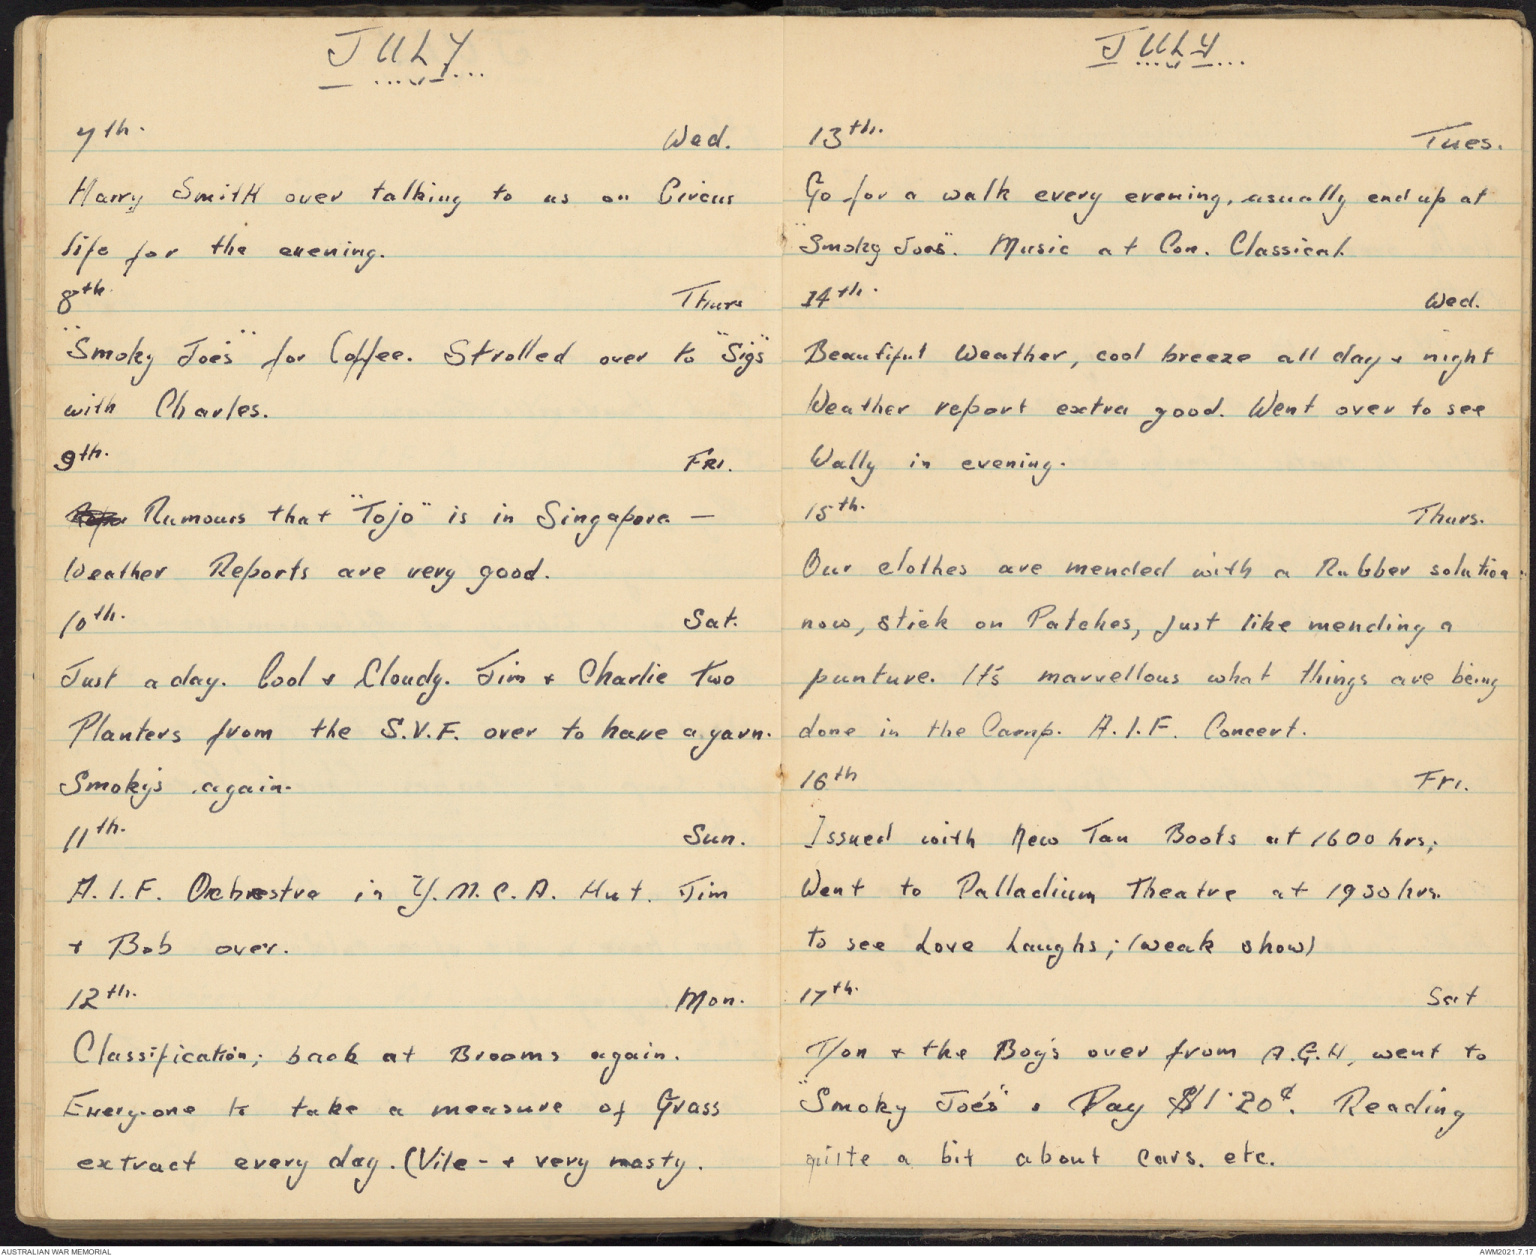 JULY
7th. Wed.
Harry Smith over talking to us on Circus
life for the evening.
8th. Thurs
"Smoky Joe's" for Coffee. Strolled over to "Sigs"
with Charles.
9th. Fri.
Rumours that "Tojo" is in Singapore —
Weather Reports are very good.
10th. Sat.
Just a day. Cool + Cloudy. Jim + Charlie two
Planters from the S.V.F. over to have a yarn.
Smoky's again.
11th. Sun.
A.I.F. Ochrestra in Y.M.C.A. Hut. Jim
+ Bob over.
12th. Mon.
Classification; back at Brooms again.
Every-one to take a measure of Grass
extract every day. (Vile - + very nasty.
JULY
13th. Tues.
Go for a walk every evening, usually end up at
"Smoky Joes". Music at Con. Classical.
14th. Wed.
Beautiful Weather, cool breeze all day + night
Weather report extra good. Went over to see
Wally in evening.
15th. Thurs.
Our clothes are mended with a Rubber solution
now, stick on Patches, just like mending a
punture. It's marvellous what things are being
done in the Camp. A.I.F. Concert.
16th Fri.
Issued with New Tan Boots at 1600 hrs;
Went to Palladium Theatre at 1930 hrs.
to see Love Laughs; (weak show)
17th. Sat
+ the Boy's over from A.G.H, went to
"Smoky Joe's". Pay $1·20¢. Reading
quite a bit about cars. etc.
AUSTRALIAN WAR MEMORIAL
AWM2021.7.17